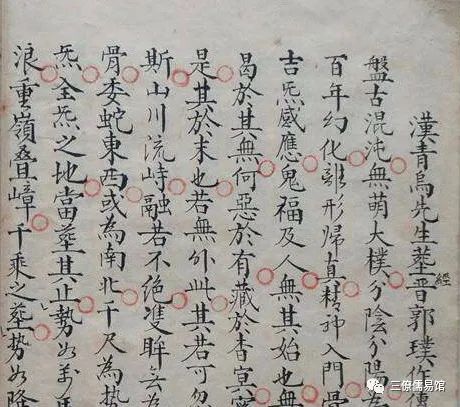 漢青烏先生塟經晋郭璞作傳
盤古混沌無萌大樸分陰分陽為
百年幻化離形歸真精神入門骨
吉炁感應鬼福及人無其始也無
曷於其無何惡於有藏於杳冥
是其於末也若無外此其若可勿
斯山川流峙融若不絕雙眸無
骨委蛇東西或為南北千尺為勢
炁全炁之地當塟其止勢如萬
浪重嶺疊嶂千乘之塟勢如降
三僚儒易馆